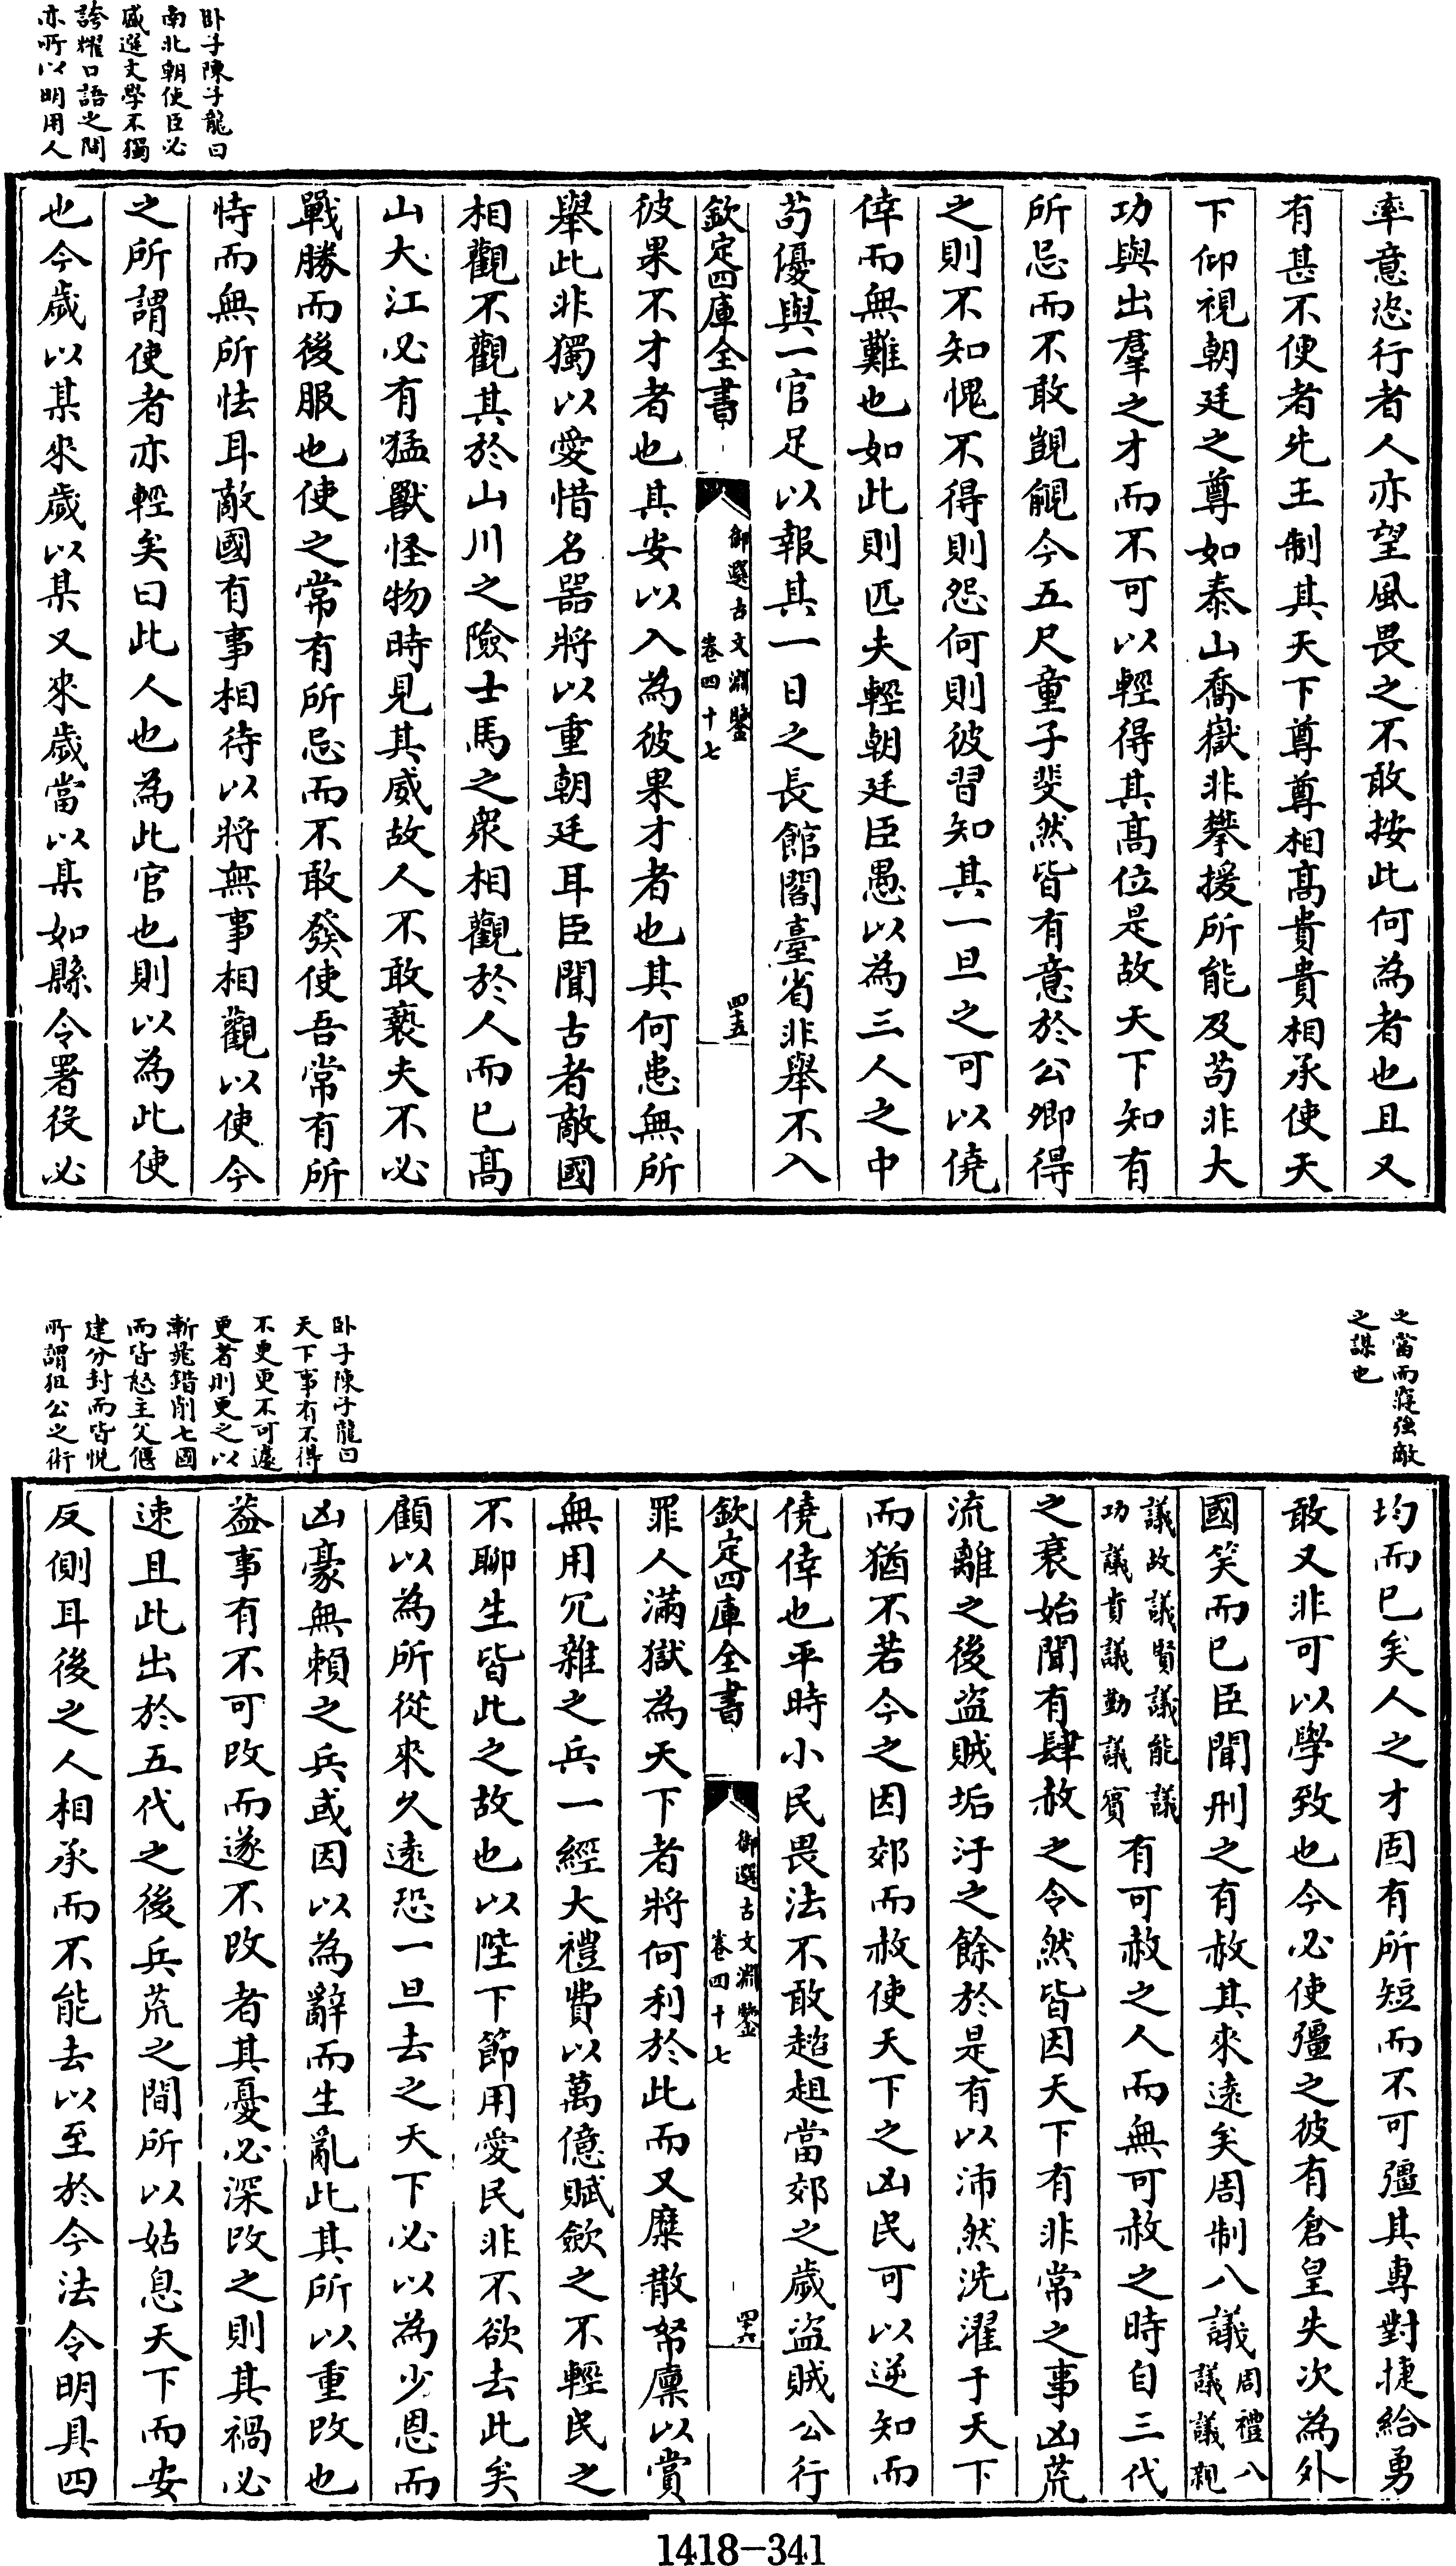 卧子陳子龍曰
南北朝使臣必
盛選文學不獨
誇耀口語之間
亦所以明用人
率意恣行者人亦望風畏之不敢按此何為者也且又
有甚不便者先王制其天下尊尊相髙貴貴相承使天
下仰視朝廷之尊如泰山喬嶽非攀援所能及苟非大
功與出羣之才而不可以輕得其髙位是故天下知有
所忌而不敢覬覦今五尺童子斐然皆有意於公卿得
之則不知愧不得則怨何則彼習知其一旦之可以僥
倖而無難也如此則匹夫輕朝廷臣愚以為三人之中
苟優與一官足以報其一日之長館閣臺省非舉不入
欽定四庫全書
御選古文淵鑒
卷四十七
四十五
彼果不才者也其安以入為彼果才者也其何患無所
舉此非獨以愛惜名器將以重朝廷耳臣聞古者敵國
相觀不觀其於山川之險士馬之衆相觀於人而已髙
山大江必有猛獸怪物時見其威故人不敢褻夫不必
戰勝而後服也使之常有所忌而不敢發使吾常有所
恃而無所怯耳敵國有事相待以將無事相觀以使今
之所謂使者亦輕矣曰此人也為此官也則以為此使
也今歲以某來歲以某又來歲當以某如縣令署役必
之當而寢強敵
之謀也
卧子陳子龍曰
天下事有不得
不更更不可遽
更者則更之以
漸鼂錯削七國
而皆怒主父偃
建分封而皆悅
所謂狙公之術
均而已矣人之才固有所短而不可彊其專對捷給勇
敢又非可以學致也今必使彊之彼有倉皇失次為外
國笑而已臣聞刑之有赦其來遠矣周制八議周禮八議議親
議故議賢議能議功議貴議勤議賓有可赦之人而無可赦之時自三代
之衰始聞有肆赦之令然皆因天下有非常之事凶荒
流離之後盗賊垢汙之餘於是有以沛然洗濯于天下
而猶不若今之因郊而赦使天下之凶民可以逆知而
僥倖也平時小民畏法不敢趦趄當郊之歲盜賊公行
欽定四庫全書
御選古文淵鑒
卷四十七
四十六
罪人滿獄為天下者將何利於此而又糜散帑廩以賞
無用冗雜之兵一經大禮費以萬億賦歛之不輕民之
不聊生皆此之故也以陛下節用愛民非不欲去此矣
顧以為所從來久遠恐一旦去之天下必以為少恩而
凶豪無賴之兵或因以為辭而生亂此其所以重改也
葢事有不可改而遂不改者其憂必深改之則其禍必
速且此出於五代之後兵荒之間所以姑息天下而安
反側耳後之人相承而不能去以至於今法令明具四
1418-341